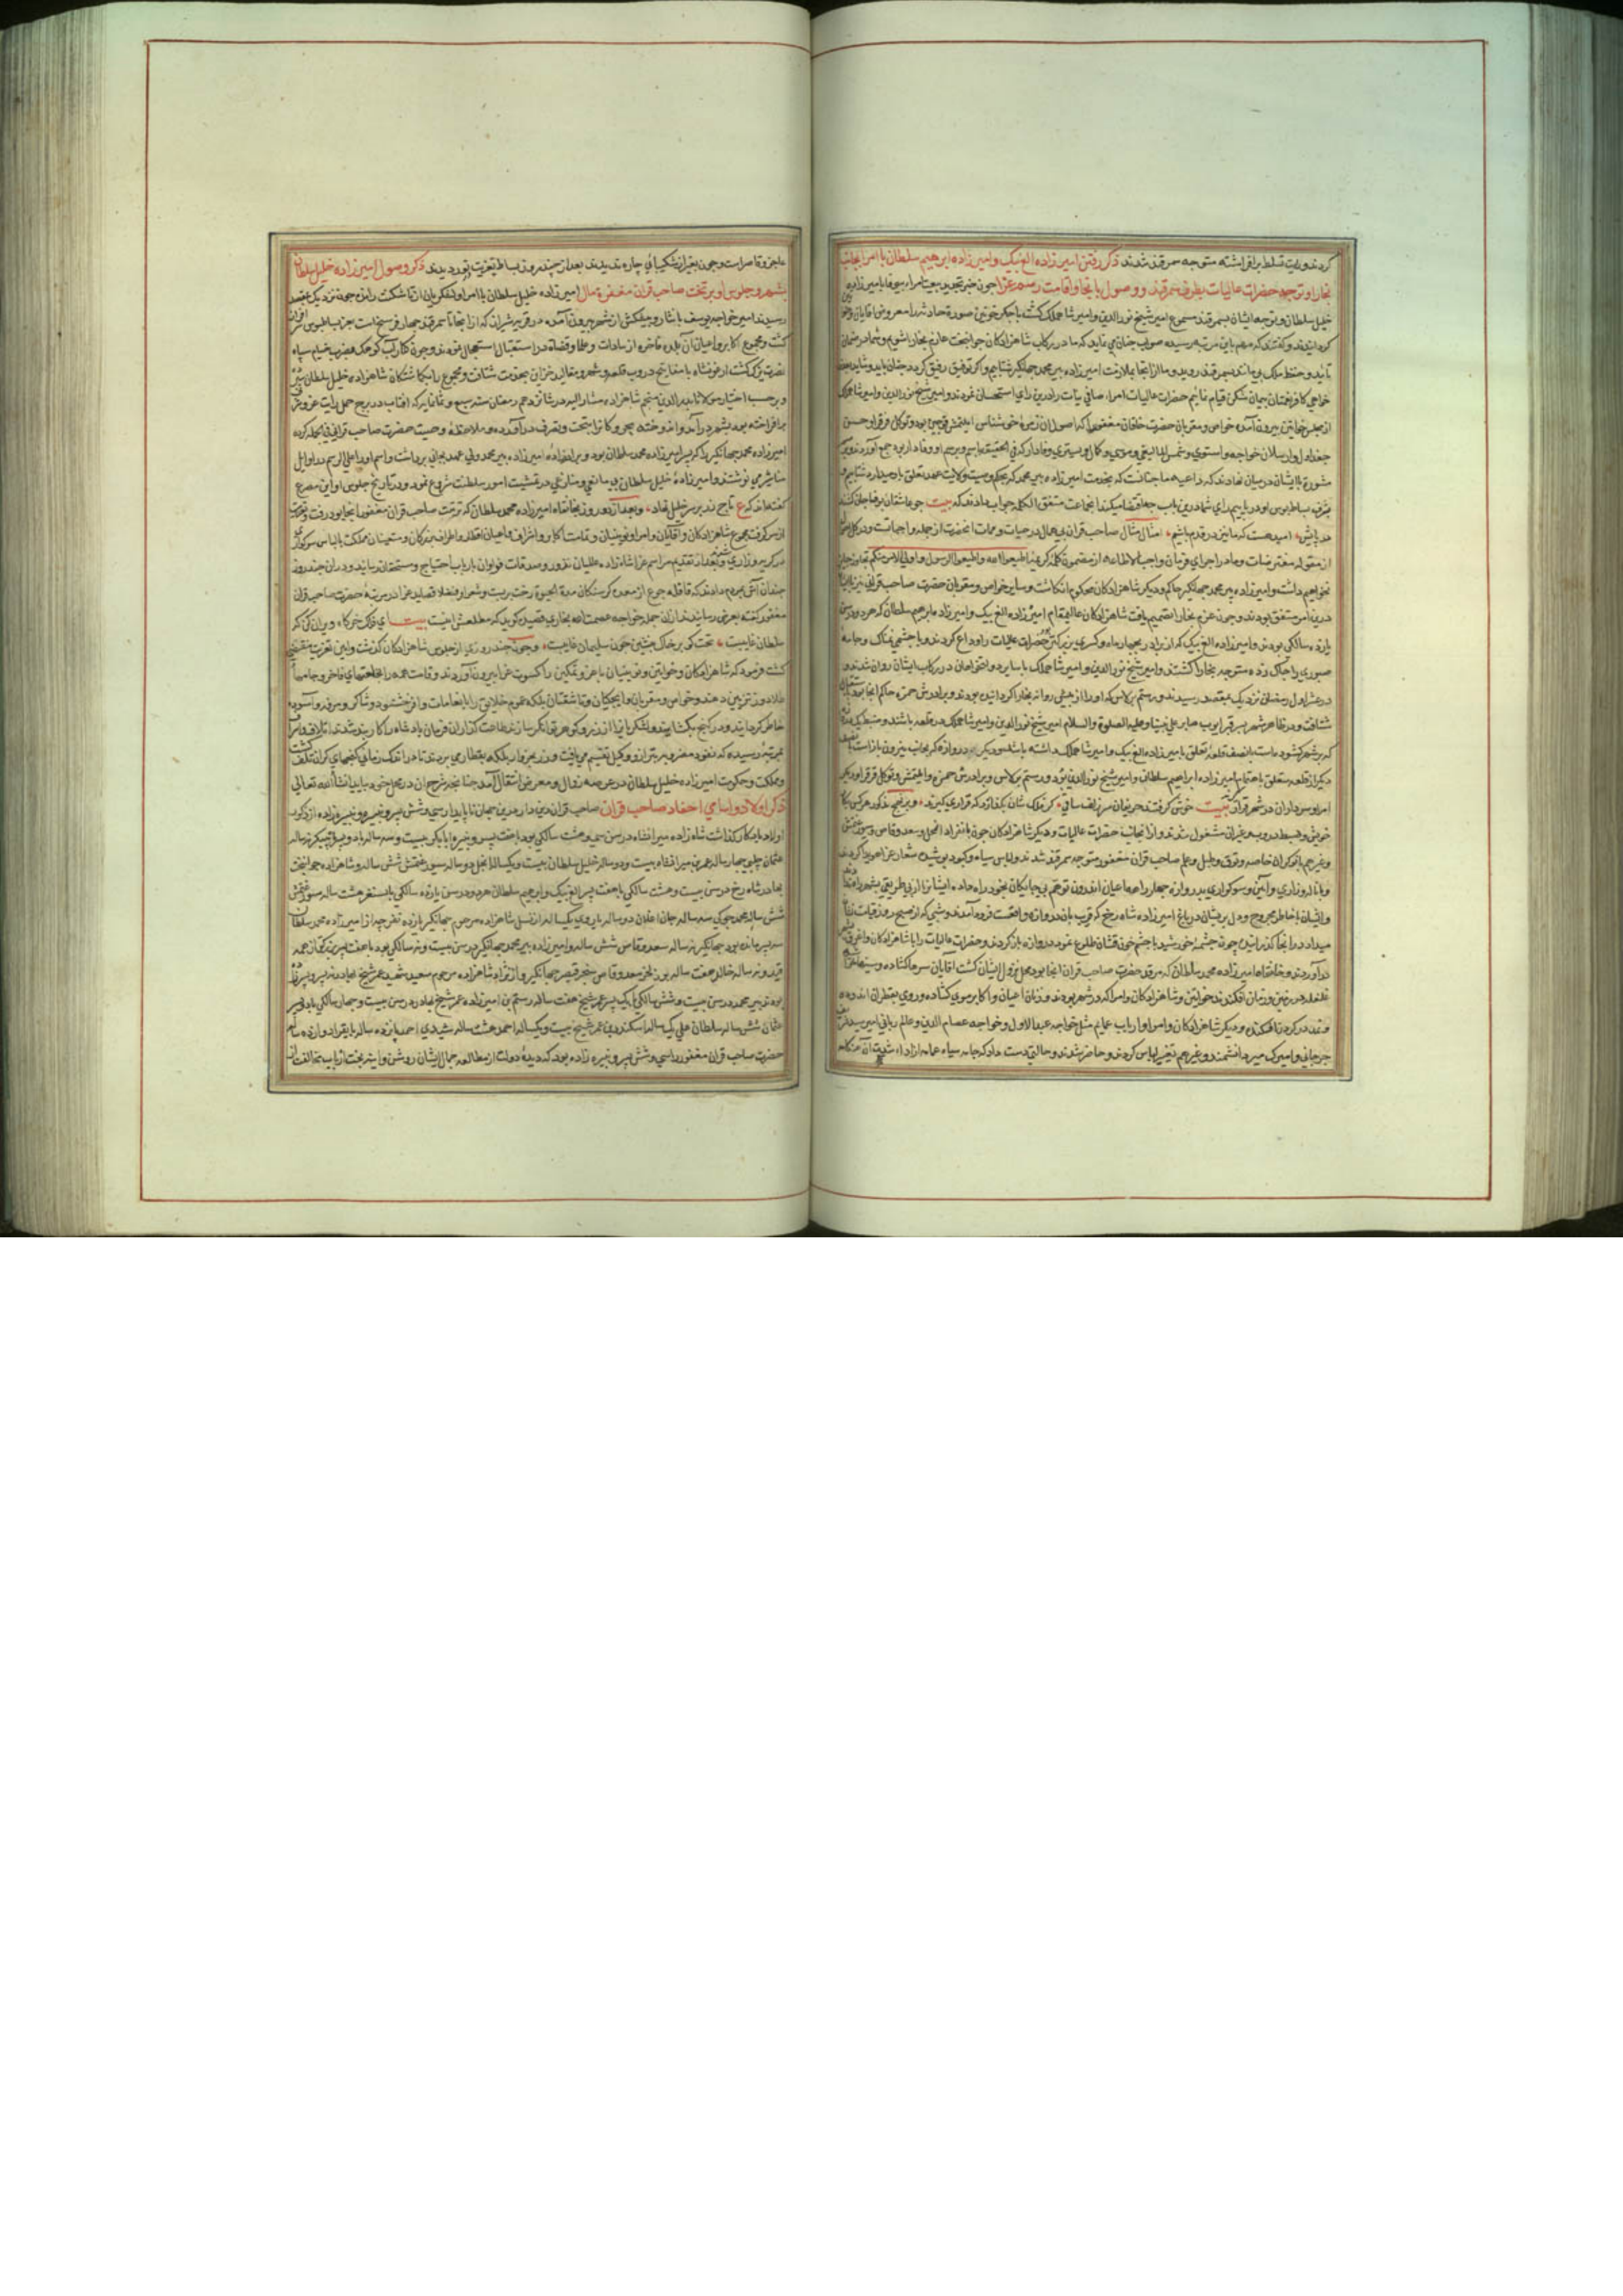 کردند و رایت تسلط برافراشته متوجه سمرقند شدند ذکر رفتن امیرزاده الغ بیک و امیرزاده ابرهیم سلطان با امرا بجانب
بخارا و توجه حضرات عالیات بطرف سمرقند و وصول بانجا و اقامت رسم عزا چون خبر تجدید بیعت امراء بیوفا بامیرزاده
خلیل سلطان و توجه ایشان بسمرقند مسموع امیر شیخ نورالدین و امیر شاهملک کشت با جکر خونین صورة حادثه را معروض اقایان
کردانیدند و کفتند که مهم باین مرتبه رسیده صواب جنان می نماید که ما در رکاب شاهزادکان جوانبخت عازم بخارا شویم و شما در ضمان
تایید و حفظ ملک سمرقند روید و ما از انجا بملازمت امیرزاده پیرمحمد جهانکیر شتابیم و اکر توفیق رفیق کردد جنان باید و شاید
بیرون آمده خواص و مقربان حضرت خاقان مغفور را که
جعدل و ارسلان خواجه و استوی و شمس الدین
مشورة با ایشان درمیان نهادند که داعیه ما جنانست که بخدمت امیرزاده پیرمحمد که بحکم وصیت ولایت عهد تعلق باو میدارد شتابیم و
بشرف بساط بوس او دریابیم رای شما درین باب جه اقتضا میکند انجماعت متفق الکلمه جواب دادند که بیت جو عاشقان بوفا جان کنند
در پایش امید هست که ما نیز در قدم باشیم امتثال مثال صاحب قران بیهمال در حیات و ممات انحضرت از جمله واجباتست
از مقوله مفترضات و ما در اجرای فرمان واجب الاطاعه از مضمون کلمه کریمه اطیعوا الله و اطیعوا الرسول و اولی الامر منکم تجاوز جایز
نخواهیم داشت و امیرزاده پیرمحمد جهانکیر حاکم و دیکر شاهزادکان محکوم انکاشت و سایر خواص و مقربان حضرت صاحب قرانی نیز
درین امر متفق بودند و جون عزم بخارا تصمیم یافت شاهزادکان عالیمقام امیرزاده الغ بیک و امیرزاده ابرهیم سلطان که هر دو در سن
یازده سالکی بودند و امیرزاده الغ بیک که از برادر بجهار ماه و کسری بزرکتر بود حضرات عالیات را وداع کردند و با جشمی نمناک و جامه
صبوری را جاک زده متوجه بخارا کشتند و امیر شیخ نورالدین و امیر شاهملک با سایر در رکاب ایشان روان شدند و
در عشر اول رمضان نزدیک بمقصد رسیدند و رستم برلاس که او را از پیش روانه بخارا کردانیده بودند و برادرش حمزه حاکم انجا بود
شتافت و در ظاهر شهر بسر قبر ایوب صابر علی نبینا و علیه الصلوة و السلام امیر شیخ نورالدین و امیر شاهملک در قلعه باشند
دیکر از قلعه متعلق باهتمام امیرزاده ابراهیم سلطان و امیر شیخ نورالدین بود و رستم برلاس و برادرش حمزه
امرا و سرداران در شهر قرار بیت خوش کرفتند حریفان سر زلف ساقی کر فلک شان بکذارد که قراری کیرند
خویش و ضبط مشغول شدند و از انجانب حضرات عالیات و دیکر شاهزادکان جون
و غیرهم با نوکران خاصه و توق و طبل و علم صاحب قران مغفور متوجه سمرقند شدند و لباس سیاه و کبود بوشیده شعار عزا هویدا کردند
و با ناله و زاری و آیین سوکواری بدروازه جهار راهه اعیان اندرون توهم بیجا بکان بخود راه داده ایشانرا از بی طریقی بشهر راه ندادند
و ایشان با خاطر مجروح و دل بریشان در باغ امیرزاده شاه رخ که قریب بان دروازه واقعست فرود آمدند و شبی که از صبح روز قیامت
میداد در انجا کذرانیدند جون جشمه خورشید با جشم خون فشان طلوع نمود دروازه باز کردند و حضرات عالیات را با شاهزادکان
در آوردند و خانقاه امیرزاده محمد سلطان که مرقد حضرت صاحب قران انجا بود محل نزول ایشان کشت اقایان سرها کشاده و
غلغله در زمین و زمان افکندند خواتین و شاهزادکان و امرا که در شهر بودند و زنان اعیان و اکابر موی کشاده و روی بقطران اندوده
و نمد در کردن افکنده و دیکر شاهزادکان و امرا و ارباب عمایم مثل خواجه عبدالاول و خواجه عصام الدین و عالم ربانی امیر سید شریف
جرجانی و امیرک میر دانشمند و غیرهم تغییر لباس کردند و حاضر شدند و حالتی دست داد که جامه سیاه
عاجز و قاصر است و جون بغیر از شکیبائی جاره ندیدند بعد از جند روز بساط تعزیت در نوردیدند ذکر وصول امیرزاده خلیل سلطان
بشهر و جلوس او بر تخت صاحب قران مغفرة مآل امیرزاده خلیل سلطان با امرا و لشکریان از تاشکنت رانده جون نزدیک بمقصد
رسیدند امیر خواجه یوسف با نثار و پیشکش از شهر بیرون آمده در قریه شیراز که از انجا تا سمرقند جهار فرسخ است بعز بساط بوس
کشت و مجموع اکابر و اعیان آن بلده فاخره از سادات و علما و قضاة در استقبال استعجال نمودند و جون کنار آب کوهک مضرب خیام سپاه
نصرت یزک کشت ارغونشاه با مفاتیح دروب قلعه و شهر و مقالید خزاین بخدمت شتافت و مجموع را بکماشتکان شاهزاده خلیل سلطان سبرد
و برحسب اختیار مولانا بدرالدین منجم شاهزاده مشار الیه در شانزدهم رمضان سنه سبع و ثمانمایه که افتاب در برج حمل رایت عز و شرف
برافراخته بود بشهر درآمد و اندوخته بحر و کانرا بتحت و تصرف درآورده و ملاحظه وصیت حضرت صاحب قرانی فی الجمله کرده
امیرزاده محمد جهانکیر را که پسر امیرزاده محمد سلطان بود و برادرزاده امیرزاده پیرمحمد ولی عهد بخانی برداشت و اسم او را علی الرسم در اوایل
مناشیر می نوشتند و امیرزاده خلیل سلطان بی مانعی و منازعی در تمشیت امور سلطنت شروع نمود و در تاریخ جلوس او این مصرع
کفته اند که ع تاج زر بر سر خلیل نهاد و بعد از دو روز بخانقاه امیرزاده محمد سلطان که تربت صاحب قران مغفور انجا بود رفت و تعزیت
از سر کرفت مجموع شاهزادکان و آقایان و امرا و نوینیان و تمامت اکابر و اشراف و اعیان اقطار و اطراف مملکت با لباس سوکوار
در کریه و زاری و بعد از تقدیم مراسم عزا شاهزاده عالمیان نذور و صدقات فراوان بارباب احتیاج و مستحقان رسانید و دران جند روز
جندان آش بمردم دادند که قافله جوع از معده کرسنکان مدة الحیوة رخت بربست و شعرا و فضلا قصاید غرا در مرثیه حضرت صاحب قران
مغفور کفته بعرض رسانیدند ازان جمله خواجه عصمت الله بخاری قصیده کوید که مطلعش اینست بیت
سلطان غایبست تخت کو بر خاک بنشین جون سلیمان غایبست و جون جند روزی از جلوس شاهزادکان کذشت و ایام تعزیت منقضی
کشت فرمود که شاهزادکان و خواتین و نوینیان باعز و تمکین را کسوت عزا بیرون آوردند و قامت همه را بخلعتهای فاخر و جامهای
طلادوز تزیین دهند و خواص و مقربان و ایجکیان و تاشقیان بلکه عموم خلایق را بانعامات وافر خشنود و شاکر و مرفه و آسوده
خاطر کردانید و در کنج بکشایند و لشکریانرا از زر و کوهر توانکر سازند طاعت کذاران فرمان بادشاه را کار بند شدند اتلاف و اسراف
بمرتبه رسیده که نقود مضروبه بترازو و کیل تقسیم می یافت و زر بخروار بلکه بقطار می بردند تا در اندک زمانی کنجهای کران تلف کشت
و مملکت و حکومت امیرزاده خلیل سلطان در عرصه زوال و معرض انتقال آمد جنانجه شرح ان در محل خود بیاید انشاء الله تعالی
ذکر اولاد و اسامی احفاد صاحب قران صاحب قران دین دار درین جهان ناپایدار سی و شش پسر و نبیره و نبیره زاده از ذکور
اولاد یادکار کذاشت شاهزاده میرانشاه در سن سی و هشت سالکی بود با هفت پسر و نبیره ابابکر بیست و سه ساله با دو پسر
عثمان جلبی جهار ساله عمر بن میرانشاه بیست و دو ساله خلیل سلطان بیست و یکساله ایجل دو ساله سیورغتمش شش ساله و شاهزاده جوانبخت
بهادر شاه رخ در سن بیست و هشت سالکی با هفت پسر الغ بیک و ابرهیم سلطان هر دو در سن یازده سالکی بایسنغر هشت ساله سیورغتمش
شش ساله محمد جوکی سه ساله جان اغلان دو ساله یاردی یکساله از نسل شاهزاده مرحوم جهانکیر یازده نفر جه از امیرزاده محمد سلطان
سه پسر مانده بود جهانکیر نه ساله سعد وقاص شش ساله و امیرزاده پیرمحمد جهانکیر در سن بیست و نه سالکی بود با هفت پسر
قیدو نه ساله خالد هفت ساله بوزنجر سعد وقاص سنجر قیصر جهانکیر و از نژاد شاهزاده مرحوم سعید شهید عمر شیخ بهادر نه پسر
بودند پیرمحمد در سن بیست و شش سالکی با یک پسر عمر شیخ هفت ساله رستم بن امیرزاده عمر شیخ بهادر در سن بیست و جهار سالکی با دو پسر
عثمان شش ساله سلطان علی یک ساله اسکندر بن عمر شیخ بیست و یک ساله احمد هشت ساله سیدی احمد پانزده ساله بایقرا دوازده ساله
حضرت صاحب قران مغفور را سی و شش پسر و نبیره زاده بود که دیده دولت از مطالعه جمال ایشان روشن